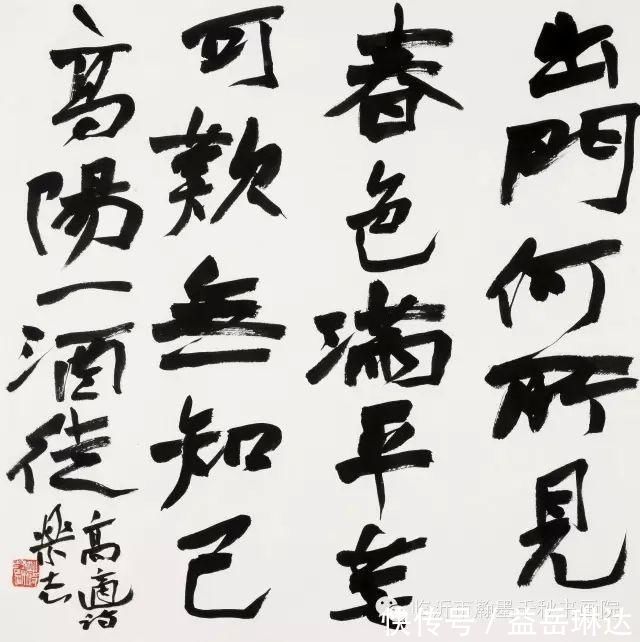 出門何所見
春色滿平蕪
可歎無知己
高陽一酒徒
高適詩
樂志
临沂市瀚墨千秋书画院
快传号 / 益岳琳达